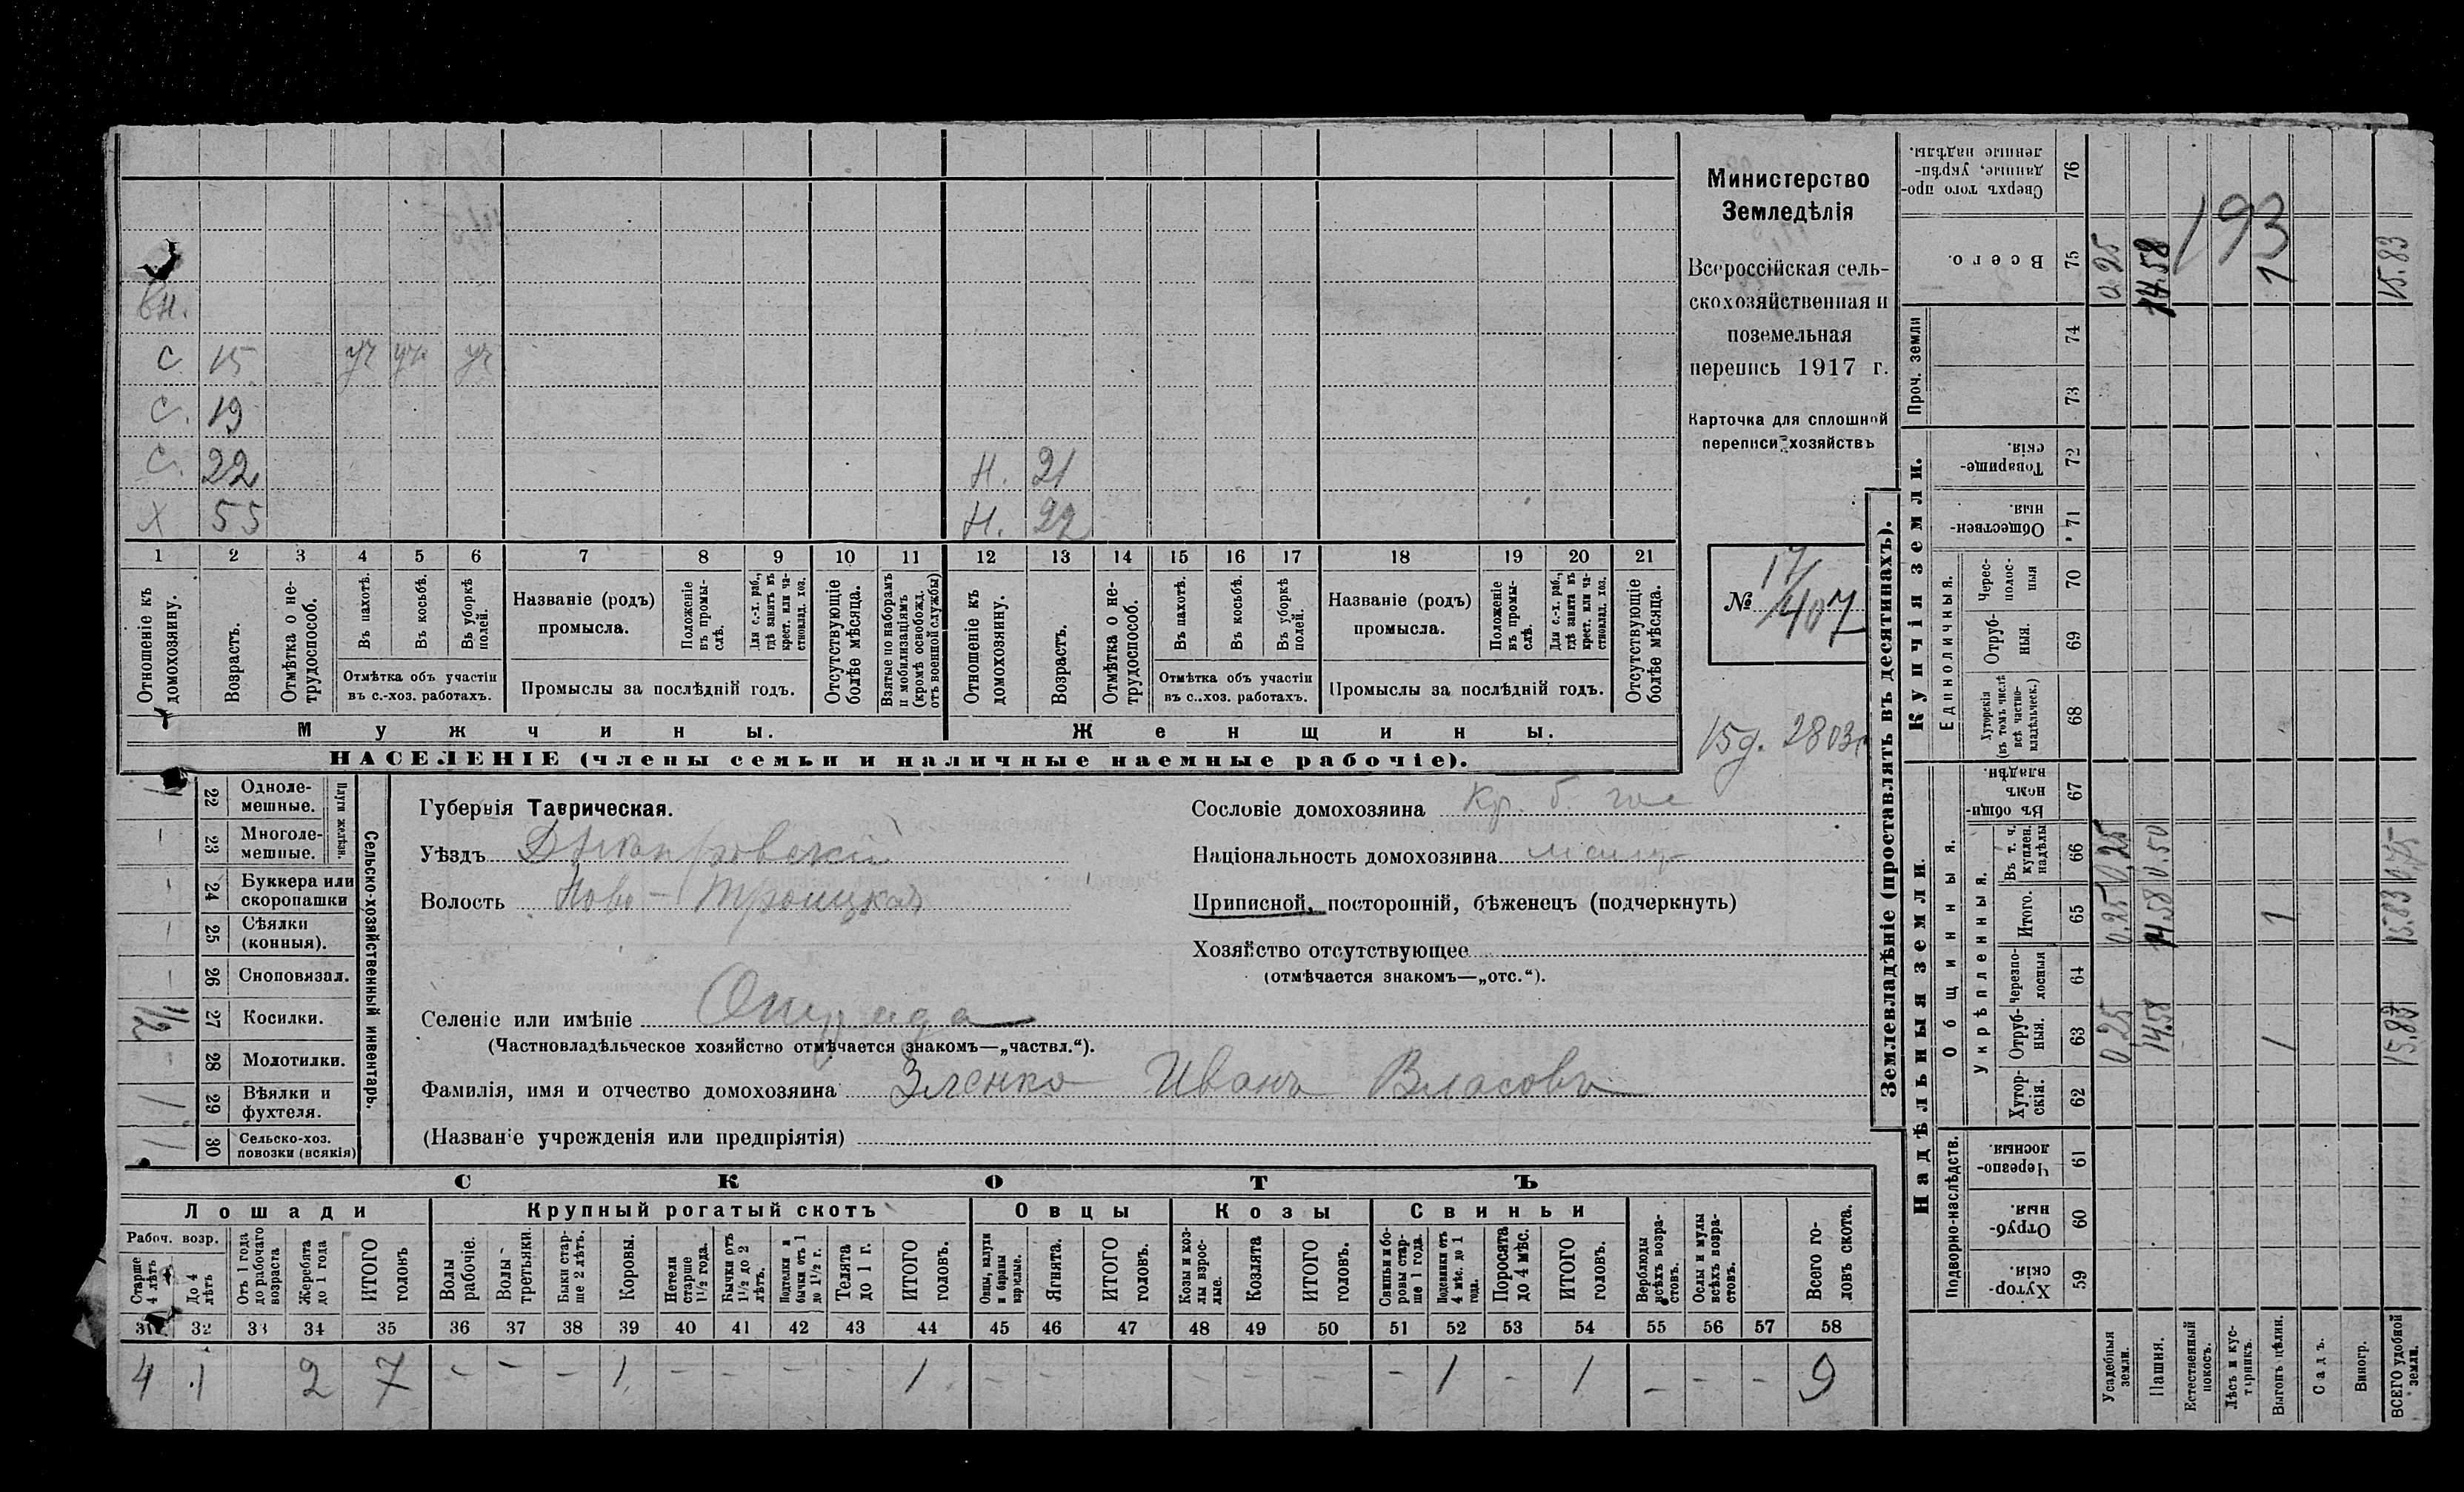 вн.
с 15 уч уч уч
с. 19
с. 22 н. 21
х 55 н. 22
1 2 3 4 5 6 7 8 9 10 11 12 13 14 15 16 17 18 19 20 21
Отношеніе къ домохозяину.
Возрастъ.
Отмѣтка о не-
трудоспособ.
Въ пахотѣ.
Въ косьбѣ.
Въ уборкѣ полей.
Отмѣтка объ участіи
въ с.-хоз. работахъ.
Названіе (родъ)
промысла.
Положеніе въ промы-
слѣ.
Для с.-х. раб.,
гдѣ занятъ въ
крест. или ча-
стновлад. хоз.
Промыслы за послѣдній годъ.
Отсутствующіе
болѣе мѣсяца.
Взятые по наборамъ
и мобилизаціямъ
(кромѣ освобожд.
отъ военной службы)
Отношеніе къ
домохозяину.
Возрастъ.
Отмѣтка о не-
трудоспособ.
Въ пахотѣ.
Въ косьбѣ.
Въ уборкѣ полей.
Отмѣтка объ участіи
въ с.-хоз. работахъ.
Названіе (родъ)
промысла.
Положеніе въ промы-
слѣ.
Для с.-х. раб.,
гдѣ занята въ
крест. или ча-
стновлад. хоз.
Промыслы за послѣдній годъ.
Отсутствующіе
болѣе мѣсяца.
Мужчины.
Женщины.
НАСЕЛЕНІЕ (члены семьи и наличные наемные рабочіе).
Министерство
Земледѣлія
Всероссійская сель-
скохозяйственная и
поземельная
перепись 1917 г.
Карточка для сплошной
переписи хозяйствъ
№ 17/407
15д. 2803
22 Одноле-
мешные.
23 Многоле-
мешные.
Плуги желѣзн.
24 Буккера или
скоропашки
25 Сѣялки
(конныя).
26 Сноповязал.
27 Косилки.
28 Молотилки.
29 Вѣялки и
фухтеля.
30 Сельско-хоз.
повозки (всякія)
Сельско-хозяйственный инвентарь.
Губернія Таврическая.
Уѣздъ Днѣпровскій
Волость Ново-Троицкая
Селеніе или имѣніе
(Частновладѣльческое хозяйство отмѣчается знакомъ—„частвл.“).
Фамилія, имя и отчество домохозяина Зленко Иванъ Власовъ
(Названіе учрежденія или предпріятія)
Сословіе домохозяина Кр. б. гос
Національность домохозяина
Приписной, посторонній, бѣженецъ (подчеркнуть)
Хозяйство отсутствующее
(отмѣчается знакомъ—„отс.“).
СКОТЪ
Лошади
Крупный рогатый скотъ
Овцы
Козы
Свиньи
Рабоч. возр.
Старше 4 лѣтъ
До 4 лѣтъ
Отъ 1 года
до рабочаго
возраста
Жеребята до 1 года
ИТОГО головъ
Волы рабочіе.
Волы третьяки.
Быки стар-
ше 2 лѣтъ.
Коровы.
Нетели старше 1½ года.
Бычки отъ 1½ до 2 лѣтъ.
Подтелки и бычки отъ 1 до 1½ г.
Телята до 1 г.
ИТОГО головъ.
Овцы, валухи и бараны взрослые.
Ягнята.
ИТОГО головъ.
Козы и коз-
лы взрос-
лые.
Козлята
ИТОГО головъ.
Свиньи и бо-
ровы стар-
ше 1 года.
Подсвинки отъ 4 мѣс. до 1 года.
Поросята до 4 мѣс.
ИТОГО головъ.
Верблюды всѣхъ возра-
стовъ.
Ослы и мулы всѣхъ возра-
стовъ.
Всего го-
ловъ скота.
31 32 33 34 35 36 37 38 39 40 41 42 43 44 45 46 47 48 49 50 51 52 53 54 55 56 57 58
4 1 2 7 – – – 1 – – – – 1 – – – – – – – 1 – 1 – – – 9
Землевладѣніе (проставлять въ десятинахъ).
Надѣльныя земли.
Купчія земли.
Проч. земли
Подворно-наслѣдств.
Общинныя.
Укрѣпленныя.
Единоличныя.
Хутор-
скія. 59
Отруб-
ныя. 60
Черезпо-
лосныя 61
Хутор-
скія. 62
Отруб-
ныя. 63
Черезпо-
лосныя 64
Итого. 65
Въ т. ч. куплен. надѣлы 66
Въ общи-
номъ владѣн. 67
Хуторскія
(въ томъ числѣ всѣ частно-
владѣльческ.) 68
Отруб-
ныя. 69
Черес-
полос-
ныя 70
Обществен-
ныя. 71
Товарище-
скія. 72
73
74
Всего. 75
Сверхъ того про-
данные, укрѣп-
ленные надѣлы. 76
Усадебныя земли. 0.25 0.25 0.25 0.25
Пашня. 14.58 14.58 0.50 14.58
Естественный покосъ.
Лѣсъ и кус-
тарникъ.
Выгонъ цѣлин. 1 1 1
Садъ.
Виногр.
ВСЕГО удобной земли. 15.83 15.83 0.75 15.83
193